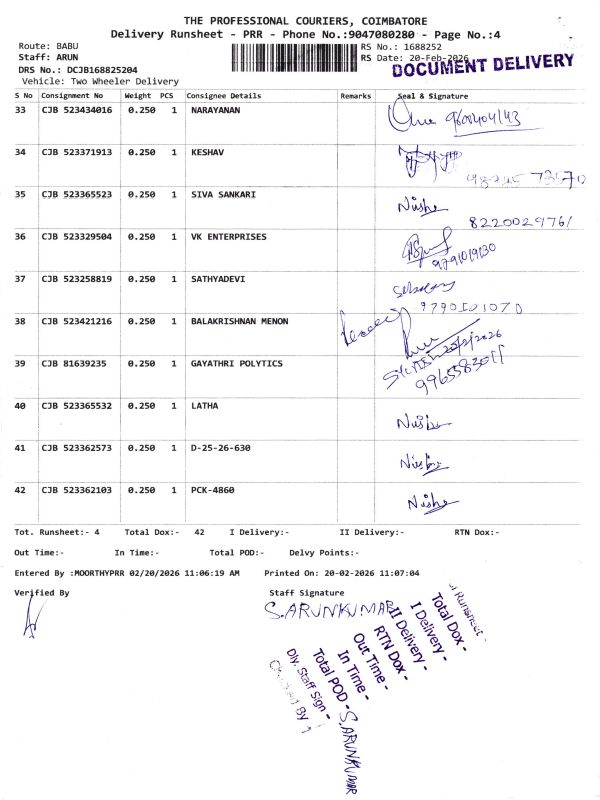 THE PROFESSIONAL COURIERS, COIMBATORE
Delivery Runsheet - PRR - Phone No.:9047080280 - Page No.:4
Route: BABU
RS No.: 1688252
Staff: ARUN
RS Date: 20-Feb-2026
DRS No.: DCJB168825204
DOCUMENT DELIVERY
Vehicle: Two Wheeler Delivery
S No Consignment No Weight PCS Consignee Details Remarks Seal & Signature
33 CJB 523434016 0.250 1 NARAYANAN
34 CJB 523371913 0.250 1 KESHAV
35 CJB 523365523 0.250 1 SIVA SANKARI Nishe
8220029761
36 CJB 523329504 0.250 1 VK ENTERPRISES
9791019130
37 CJB 523258819 0.250 1 SATHYADEVI
9790101070
38 CJB 523421216 0.250 1 BALAKRISHNAN MENON
39 CJB 81639235 0.250 1 GAYATHRI POLYTICS
9965583011
40 CJB 523365532 0.250 1 LATHA Nishe
41 CJB 523362573 0.250 1 D-25-26-630 Nishe
42 CJB 523362103 0.250 1 PCK-4860 Nishe
Tot. Runsheet:- 4 Total Dox:- 42 I Delivery:- II Delivery:- RTN Dox:-
Out Time:- In Time:- Total POD:- Delvy Points:-
Entered By :MOORTHYPRR 02/20/2026 11:06:19 AM Printed On: 20-02-2026 11:07:04
Verified By Staff Signature
S.ARUNKUMAR
Runsheet -
Total Dox -
I Delivery -
II Delivery -
RTN Dox -
Out Time -
In Time -
Total POD - S.ARUNKUMAR
Dly. Staff Sign -
Checked By -